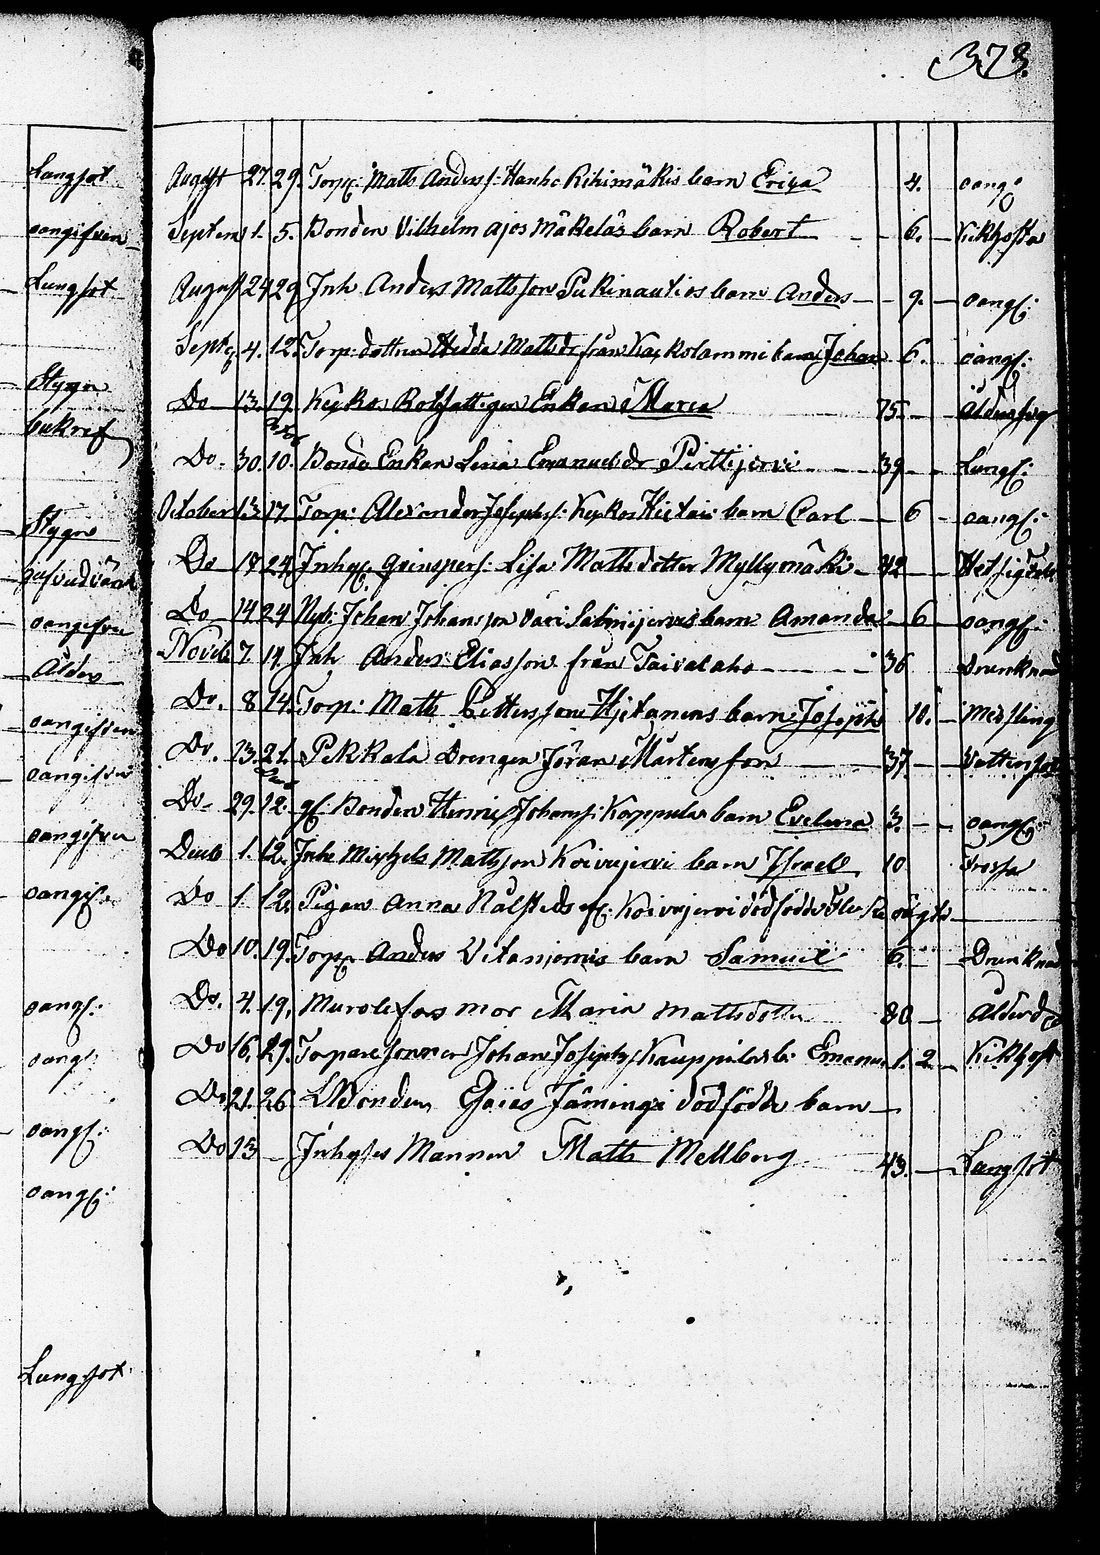 373.
Langsot
oangifven
Lungsot
Styng
bukref
Styng
oangifven
Ålders
oangifven
oangifven
oangifven
oangif:
oangf:
oangf:
oangf:
oangf:
Lungsot
August 27. 29. Torp: Matts Anderss: Rihimäkis barn Erica 4. oangf
Septem 1. 5. Bonden Vilhelm Ajos Mäkeläs barn Robert 6. Kikhosta
August 24 29 Inh Anders Mattsson Pukinautios barn Anders 9. oangf:
Septr 4. 12. Torp: dottren Hedda Mattsdr från Kaskolammi barn Johan 6. oangf:
Do 13. 19. Enkan Maria 75. Ålders
Octob
Do. 30. 10. Bonde Enkan Lisa Emanuelsdr Pirttijervi 39 Lungs:
October 13. 17. Torp: Alexander Josephs: barn Carl 6 oangf:
Do 17 24 Inhys Lisa Matts dotter Myllymäki 42 Hetsig
Do 14 24 Nyb: Johan Johansson barn Amanda 6 oangf:
Novbr 7 14. Inh Anders Eliasson från Taivalaho 36 Drunknad
Do. 8 14. Torp: Matts Pettersson Hietanens barn Joseph 10. Messling
Do. 13. 21. Pekkala Drengen Jöran Mårtensson 37 Vattensot
Do. 29. 12. Bonden Henric Johans: Karppulas barn Evelina 3. oangf:
Decb 1. 12. Inh: Michels Mattsson Koivujervi barn Israel 10 Trossa
Do 1. 12. Pigan Anna Koivujervi dödfödde
Do 10. 19. Torp: Anders Vitaniemis barn Samuel 6. Drunknad
Do. 4. 19. Murolefors mor Maria Mattsdotter 80 Ålderd
Do 16. 29. Torparesonnen Johan Josephs: Kauppilas b: Emanuel 1. 2. Kikhost
Do 21. 26. Bonden Esaias Jäminge dödfödde barn
Do 13 Inhyses Mannen Matts Mellberg 43. Lungsot